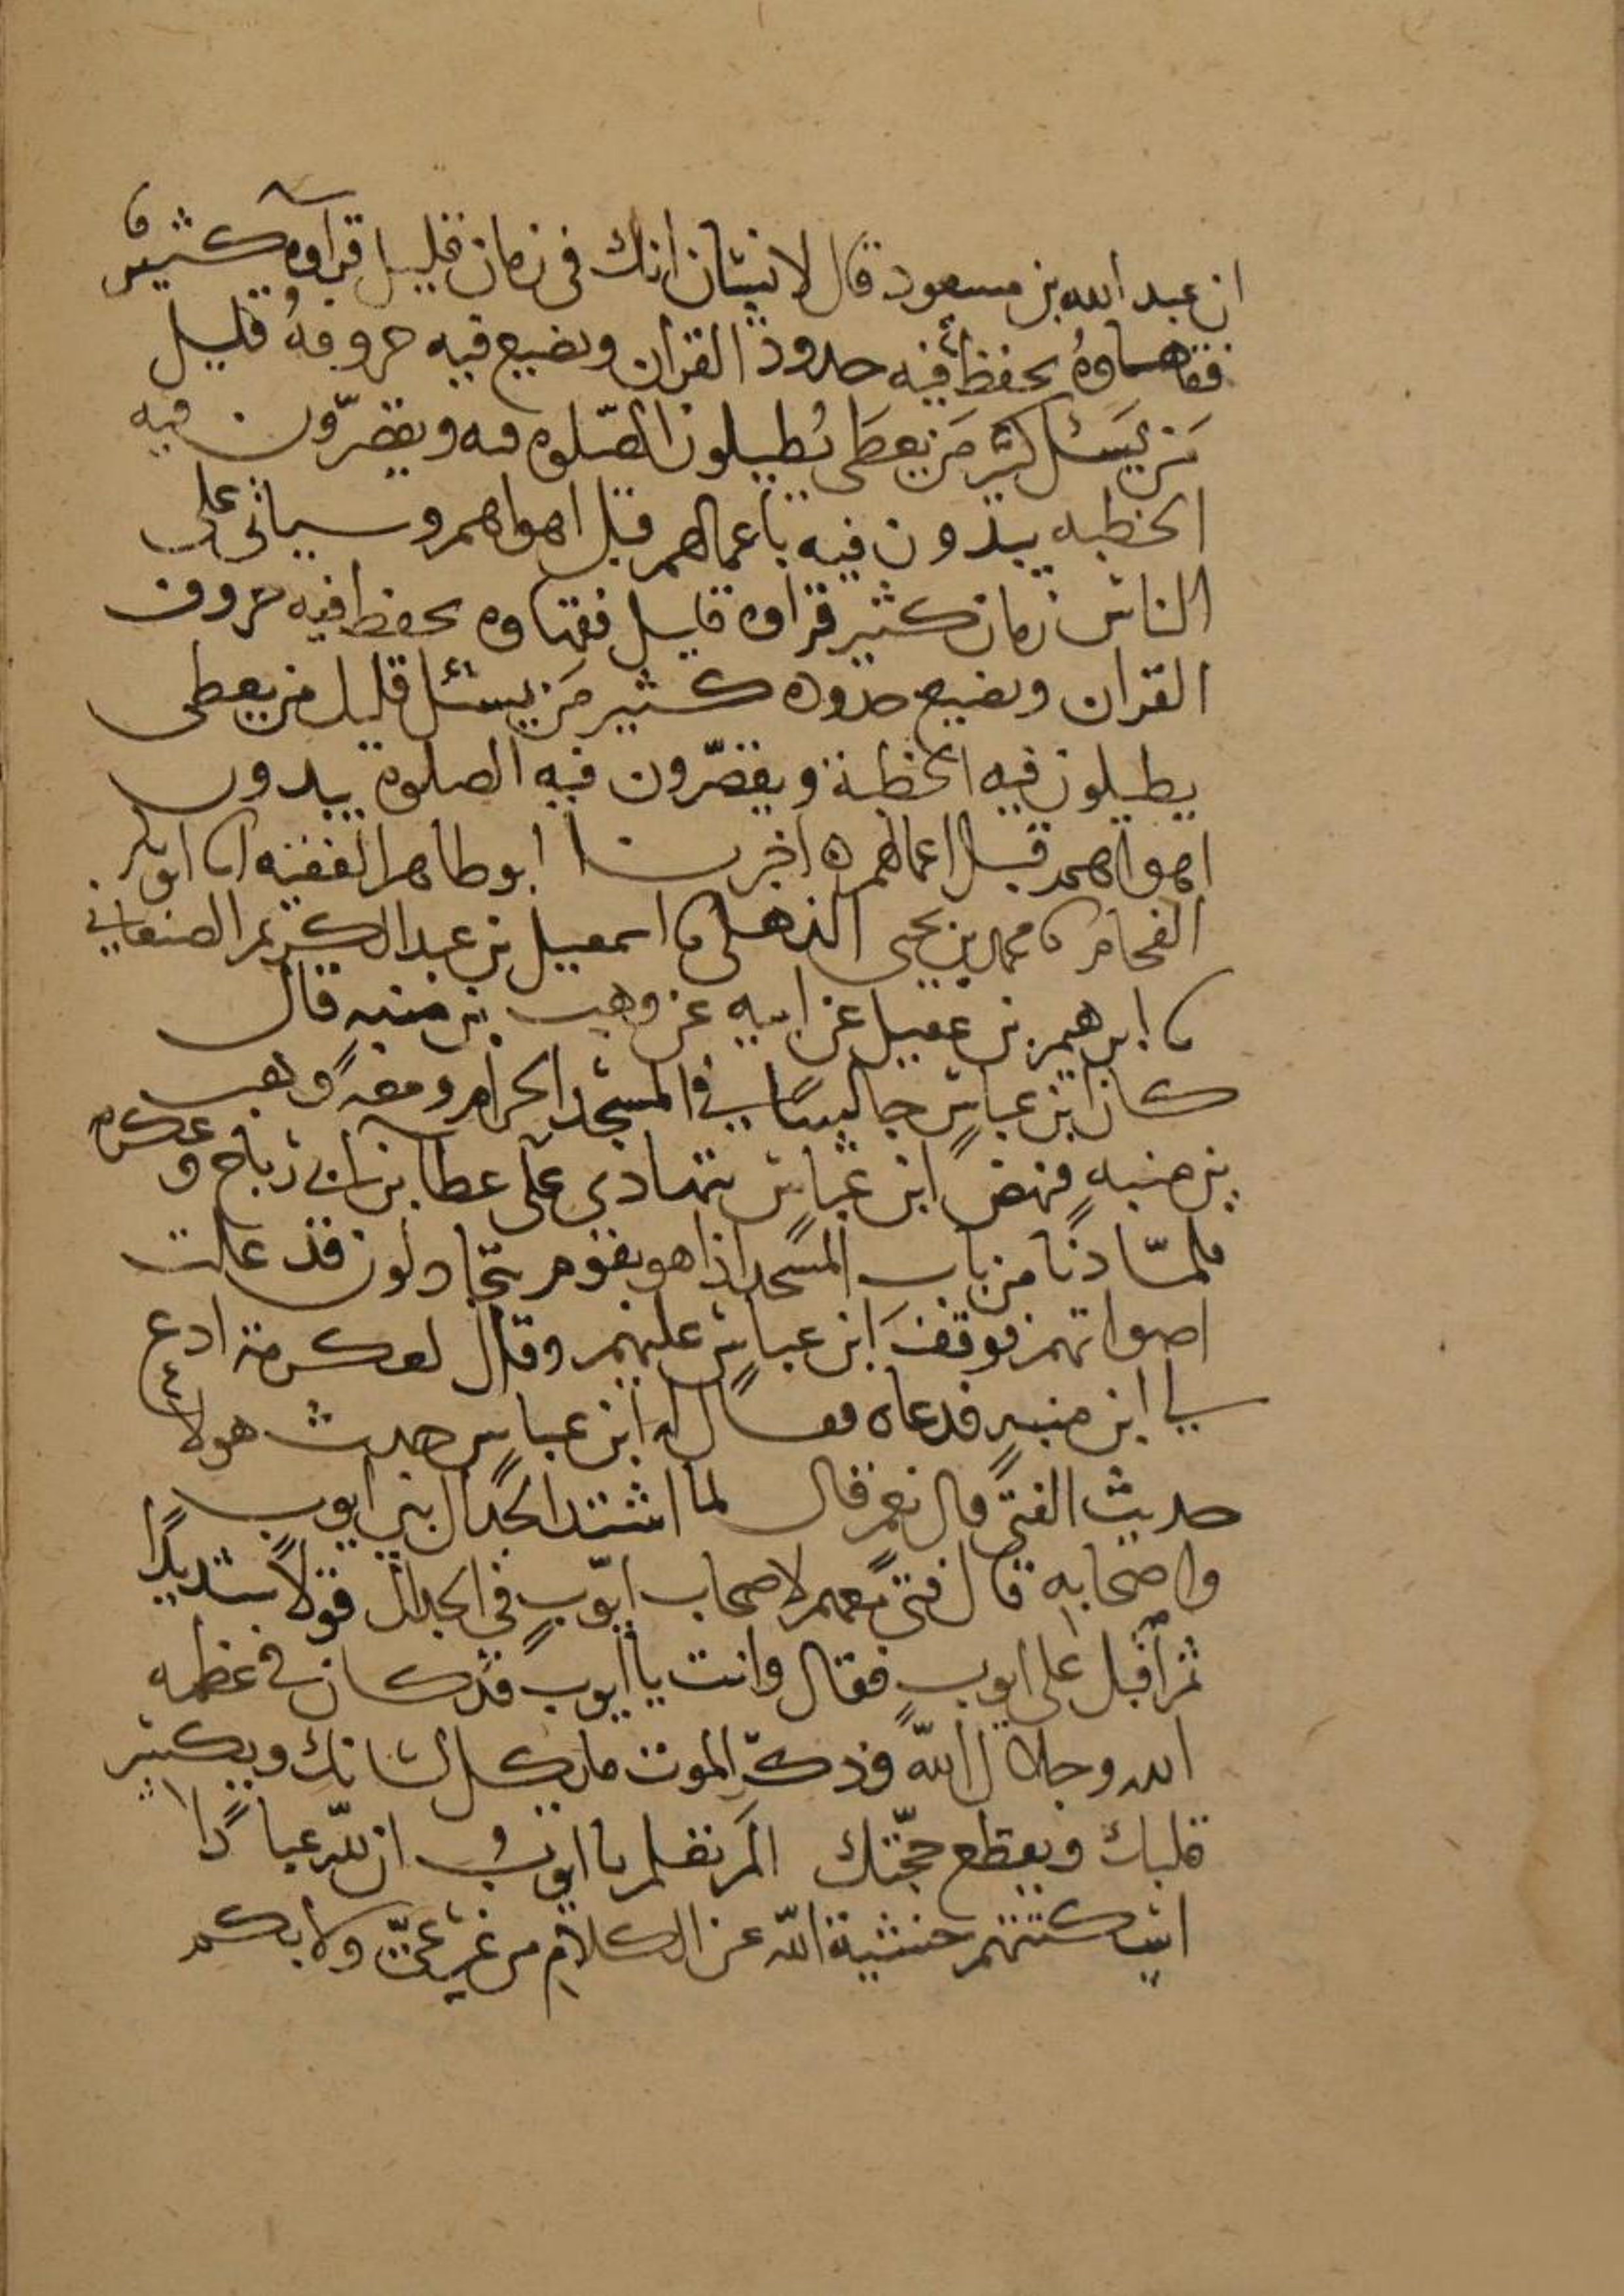 ان عبد الله بن مسعود قال لانسان انك في زمان قليل قراوه كثير
فقهاوهُ يحفظ فيه حدود القران ويضيع فيه حروفهُ قليل
مَن يَسئل كثير مَن يعطَى يُطيلون الصّلوه فيه ويقصّرون فيه
الخطبه يبدون فيه باعمالهم قبل اهواهم وسياتى على
الناس زمان كثير قراوه قليل فقهاوه يحفظ فيه حروف
القران ويضيع حدوده كثير مَن يسئل قليل من يعطى
يطيلون فيه الخطبة ويقصّرون فيه الصلوه يبدون
اهواهم قبل اعمالهم ه اخبرنا ابو طاهر الفقيه انا ابو بكر
الفحام نا محمد بن يحيى الذهلى نا اسمعيل بن عبد الكريم الصنعاني
نا ابرهيم بن عقيل عن ابيه عن وهب بن منبه قال
كان ابن عباسٍ جالسًا في المسجد الحرام ومعه وهب
بن منبهٍ فنهض ابن عباس يتهادى على عطا بن ابي رباح وعكرمه
فلمّا دنا من باب المسجد اذا هو بقوم يتجادلون قد علت
اصواتهم فوقفَ ابن عباسٍ عليهم وقال لعكرمة ادع
لي ابن منبهٍ فدعاه فقال له ابن عباس حدث هولاء
حديث الفتى قال نعم قال لما اشتد الجدال بين ايوب
واصحابه قال فتى معهم لاصحاب ايّوبٍ في الجدال قولاً شديدًا
ثم اقبل على ايوبٍ فقال وانت يا ايوب قد كان في عظمه
الله وجلال اللّه وذكر الموت ما يكل لسانك ويكسر
قلبك ويقطع حجّتك المَ تعلم يا ايوب ان للّه عبادًا
اسكتتهم خشية اللّه عن الكلام من غير عىّ ولا بكم